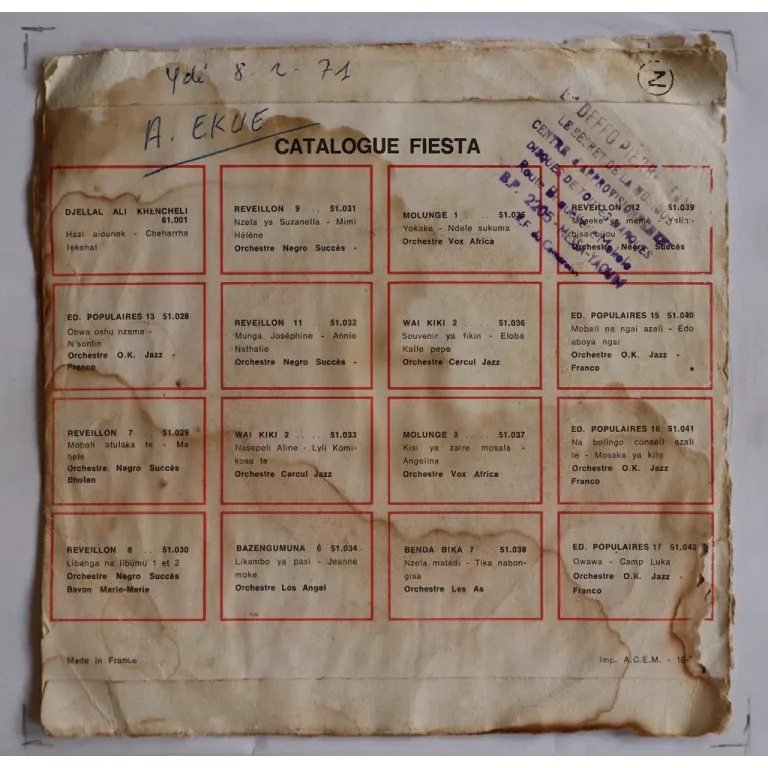 Ydé 8-2-71
N
A. EKUE
CATALOGUE FIESTA
CENTRE D'APPROVISIONNEMENT
DISQUES DE TOUTES MARQUES
B.P. 2205 - MESSA-YAOUNDE
du Cameroun
DJELLAL ALI KHENCHELI
61.001
Hazi aiounek - Cheharrha
lekehal
REVEILLON 9 .. 51.031
Nzela ya Suzanella - Mimi
Hélène
Orchestre Negro Succès -
MOLUNGE 1 . . 51.035
Yokake - Ndele sukuma
Orchestre Vox Africa
REVEILLON 12 . 51.039
memé
bisambijou
Orchestre Negro Succès
ED. POPULAIRES 13 51.028
Obwa oshu nzeme -
N'sontin
Orchestre O.K. Jazz -
Franco
REVEILLON 11 .. 51.032
Munga Joséphine - Annie
Nathalie
Orchestre Negro Succès -
WAI KIKI 2 . . 51.036
Souvenir ya fikin - Eloba
Kalle pepe
Orchestre Cercul Jazz
ED. POPULAIRES 15 51.040
Mobali na ngai azali - Edo
aboya ngai
Orchestre O.K. Jazz -
Franco
REVEILLON 7 . . 51.029
Mobali atulaka te - Ma
hele
Orchestre Negro Succès
Bholen
WAI KIKI 2 . . . 51.033
Nasepeli Aline - Lyli Komi-
kosa te
Orchestre Cercul Jazz
MOLUNGE 3 . . 51.037
Kisi ya zaire mosala -
Angelina
Orchestre Vox Africa
ED. POPULAIRES 16 51.041
Na bolingo conseil ezali
te - Mosaka ya kilo
Orchestre O.K. Jazz
Franco
REVEILLON 8 .. 51.030
Libanga na libumu 1 et 2
Orchestre Negro Succès
Bavon Marie-Marie
BAZENGUMUNA 6 51.034
Likambo ya pasi - Jeanne
moke
Orchestre Los Angel
BENDA BIKA 7 51.038
Nzela matedi - Tika nabon-
gisa
Orchestre Les As
ED. POPULAIRES 17 51.042
Owawa - Camp Luka
Orchestre O.K. Jazz -
Franco
Made in France
Imp. A.C.E.M. - 10-